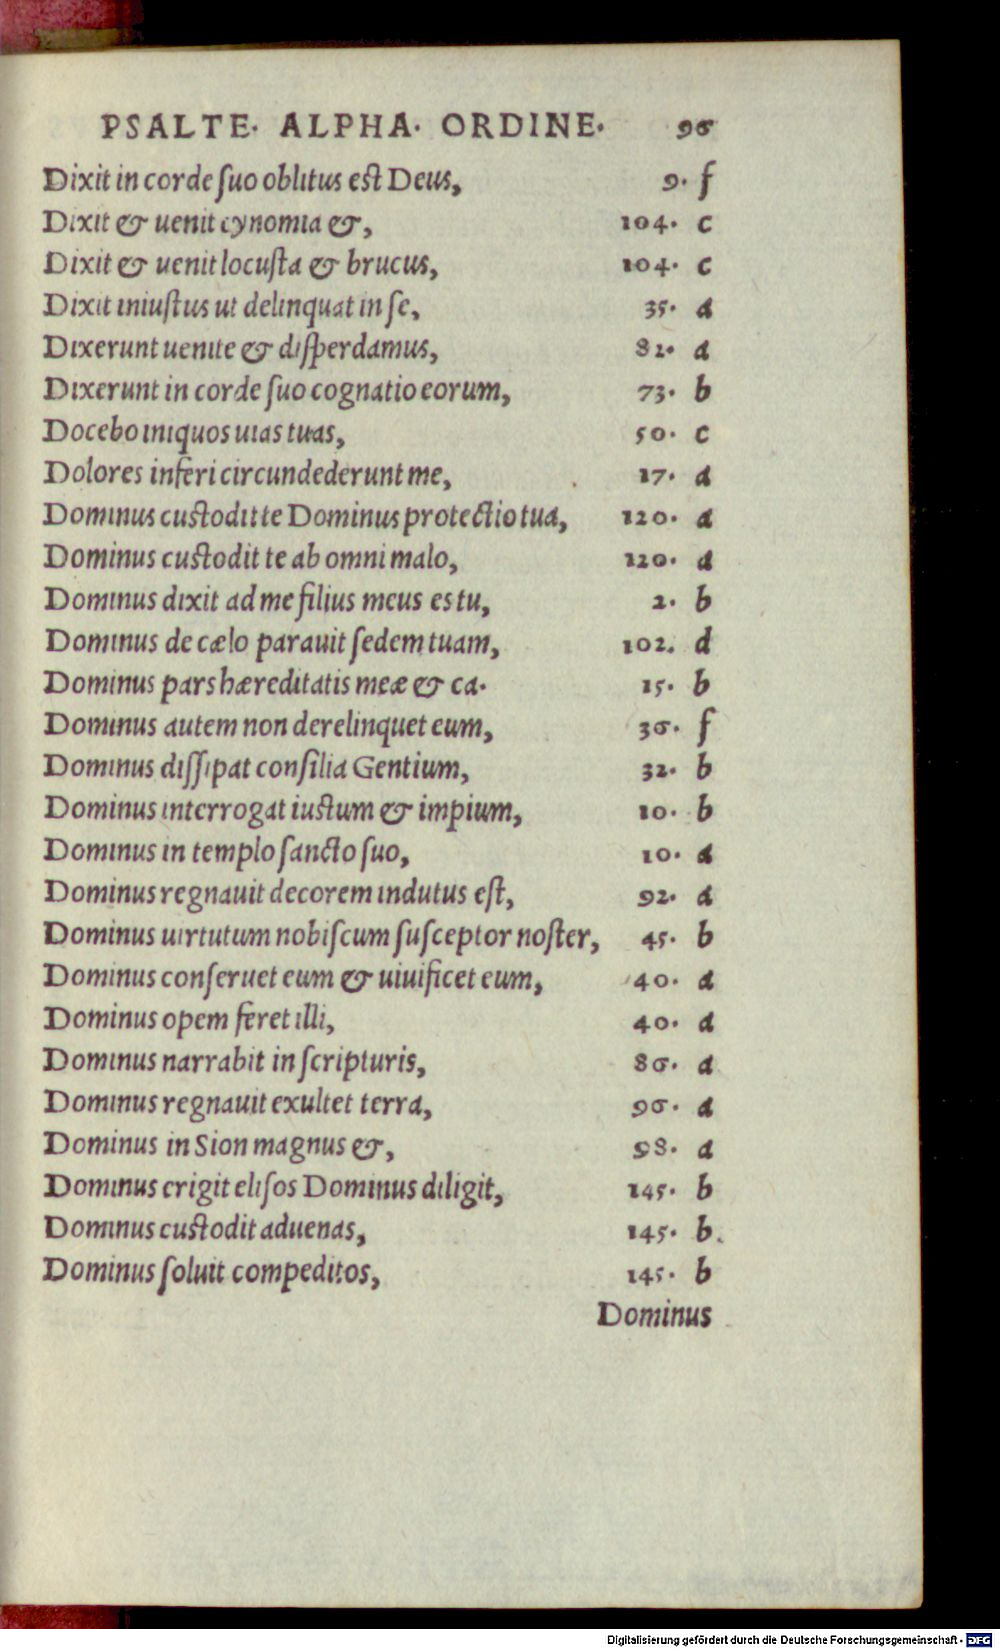 PSALTE· ALPHA· ORDINE· 96
Dixit in corde ſuo oblitus eſt Deus, 9· f
Dixit & uenit cynomia &, 104· c
Dixit & uenit locuſta & brucus, 104· c
Dixit iniuſtus ut delinquat in ſe, 35· a
Dixerunt uenite & diſperdamus, 82· a
Dixerunt in corde ſuo cognatio eorum, 73· b
Docebo iniquos uias tuas, 50· c
Dolores inferi circundederunt me, 17· a
Dominus cuſtodit te Dominus protectio tua, 120· a
Dominus cuſtodit te ab omni malo, 120· a
Dominus dixit ad me filius meus es tu, 2· b
Dominus de cælo parauit ſedem tuam, 102. d
Dominus pars hæreditatis meæ & ca· 15· b
Dominus autem non derelinquet eum, 36· f
Dominus diſſipat conſilia Gentium, 32· b
Dominus interrogat iuſtum & impium, 10· b
Dominus in templo ſancto ſuo, 10· a
Dominus regnauit decorem indutus eſt, 92· a
Dominus uirtutum nobiſcum ſuſceptor noſter, 45· b
Dominus conſeruet eum & uiuificet eum, 40· a
Dominus opem feret illi, 40· a
Dominus narrabit in ſcripturis, 86· a
Dominus regnauit exultet terra, 96· a
Dominus in Sion magnus &, 98· a
Dominus erigit eliſos Dominus diligit, 145· b
Dominus cuſtodit aduenas, 145· b.
Dominus ſoluit compeditos, 145· b
Dominus
Digitalisierung gefördert durch die Deutsche Forschungsgemeinschaft - DFG